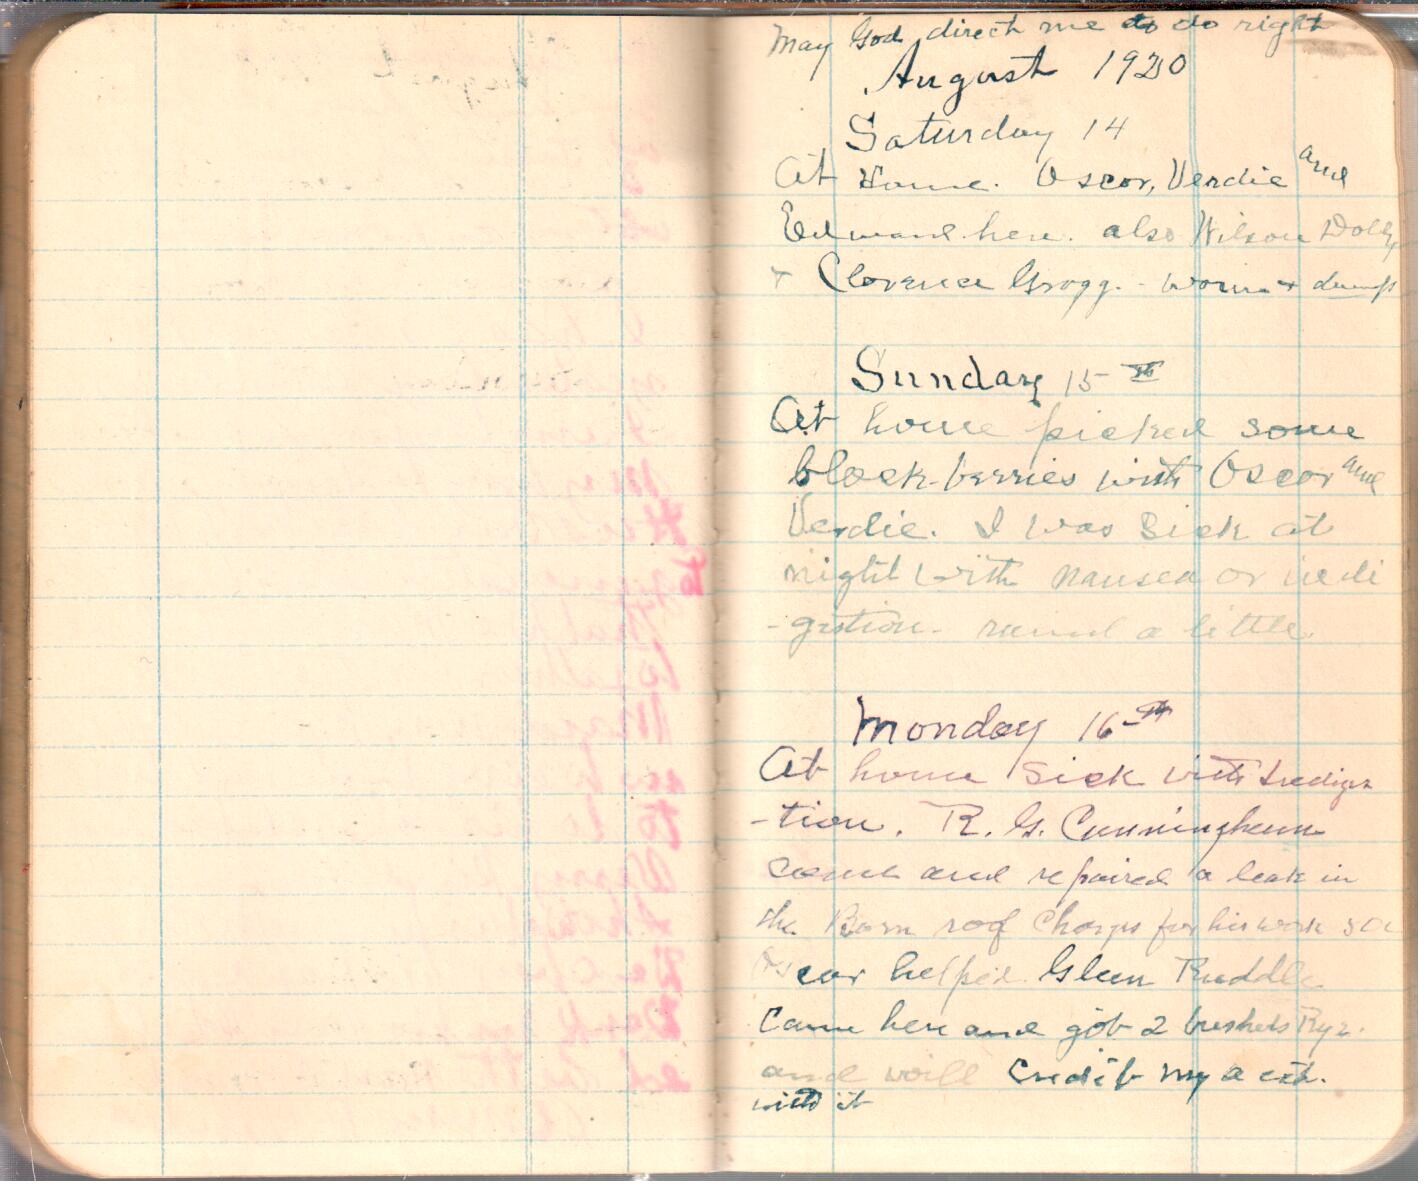 May God direct me to do right
August 1920
Saturday 14
At Home. Oscar, Verdie and
Edward here. also Wilson Dolly
+ Clarence Gragg. - warm + damp
Sunday 15th
At home picked some
black-berries with Oscar and
Verdie. I was Sick at
night with nausea or indi
-gestion- rained a little.
Monday 16th
At home Sick with Indiges
-tion. R. G. Cunningham
came and repaired a leak in
the Barn roof Charges for his work 50
Oscar helped. Glenn Ruddle
Came here and got 2 bushels Rye.
and will Credit my act.
with it